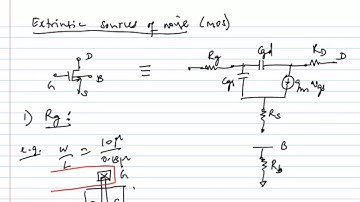 Extrinsic sources of noise (MOS)
D
G
B
S
≡
Rg
Cgd
RD
Cgs
gm vgs
RS
B
Rb
1) Rg :
e.g. W/L = 10μ/0.18μ
G